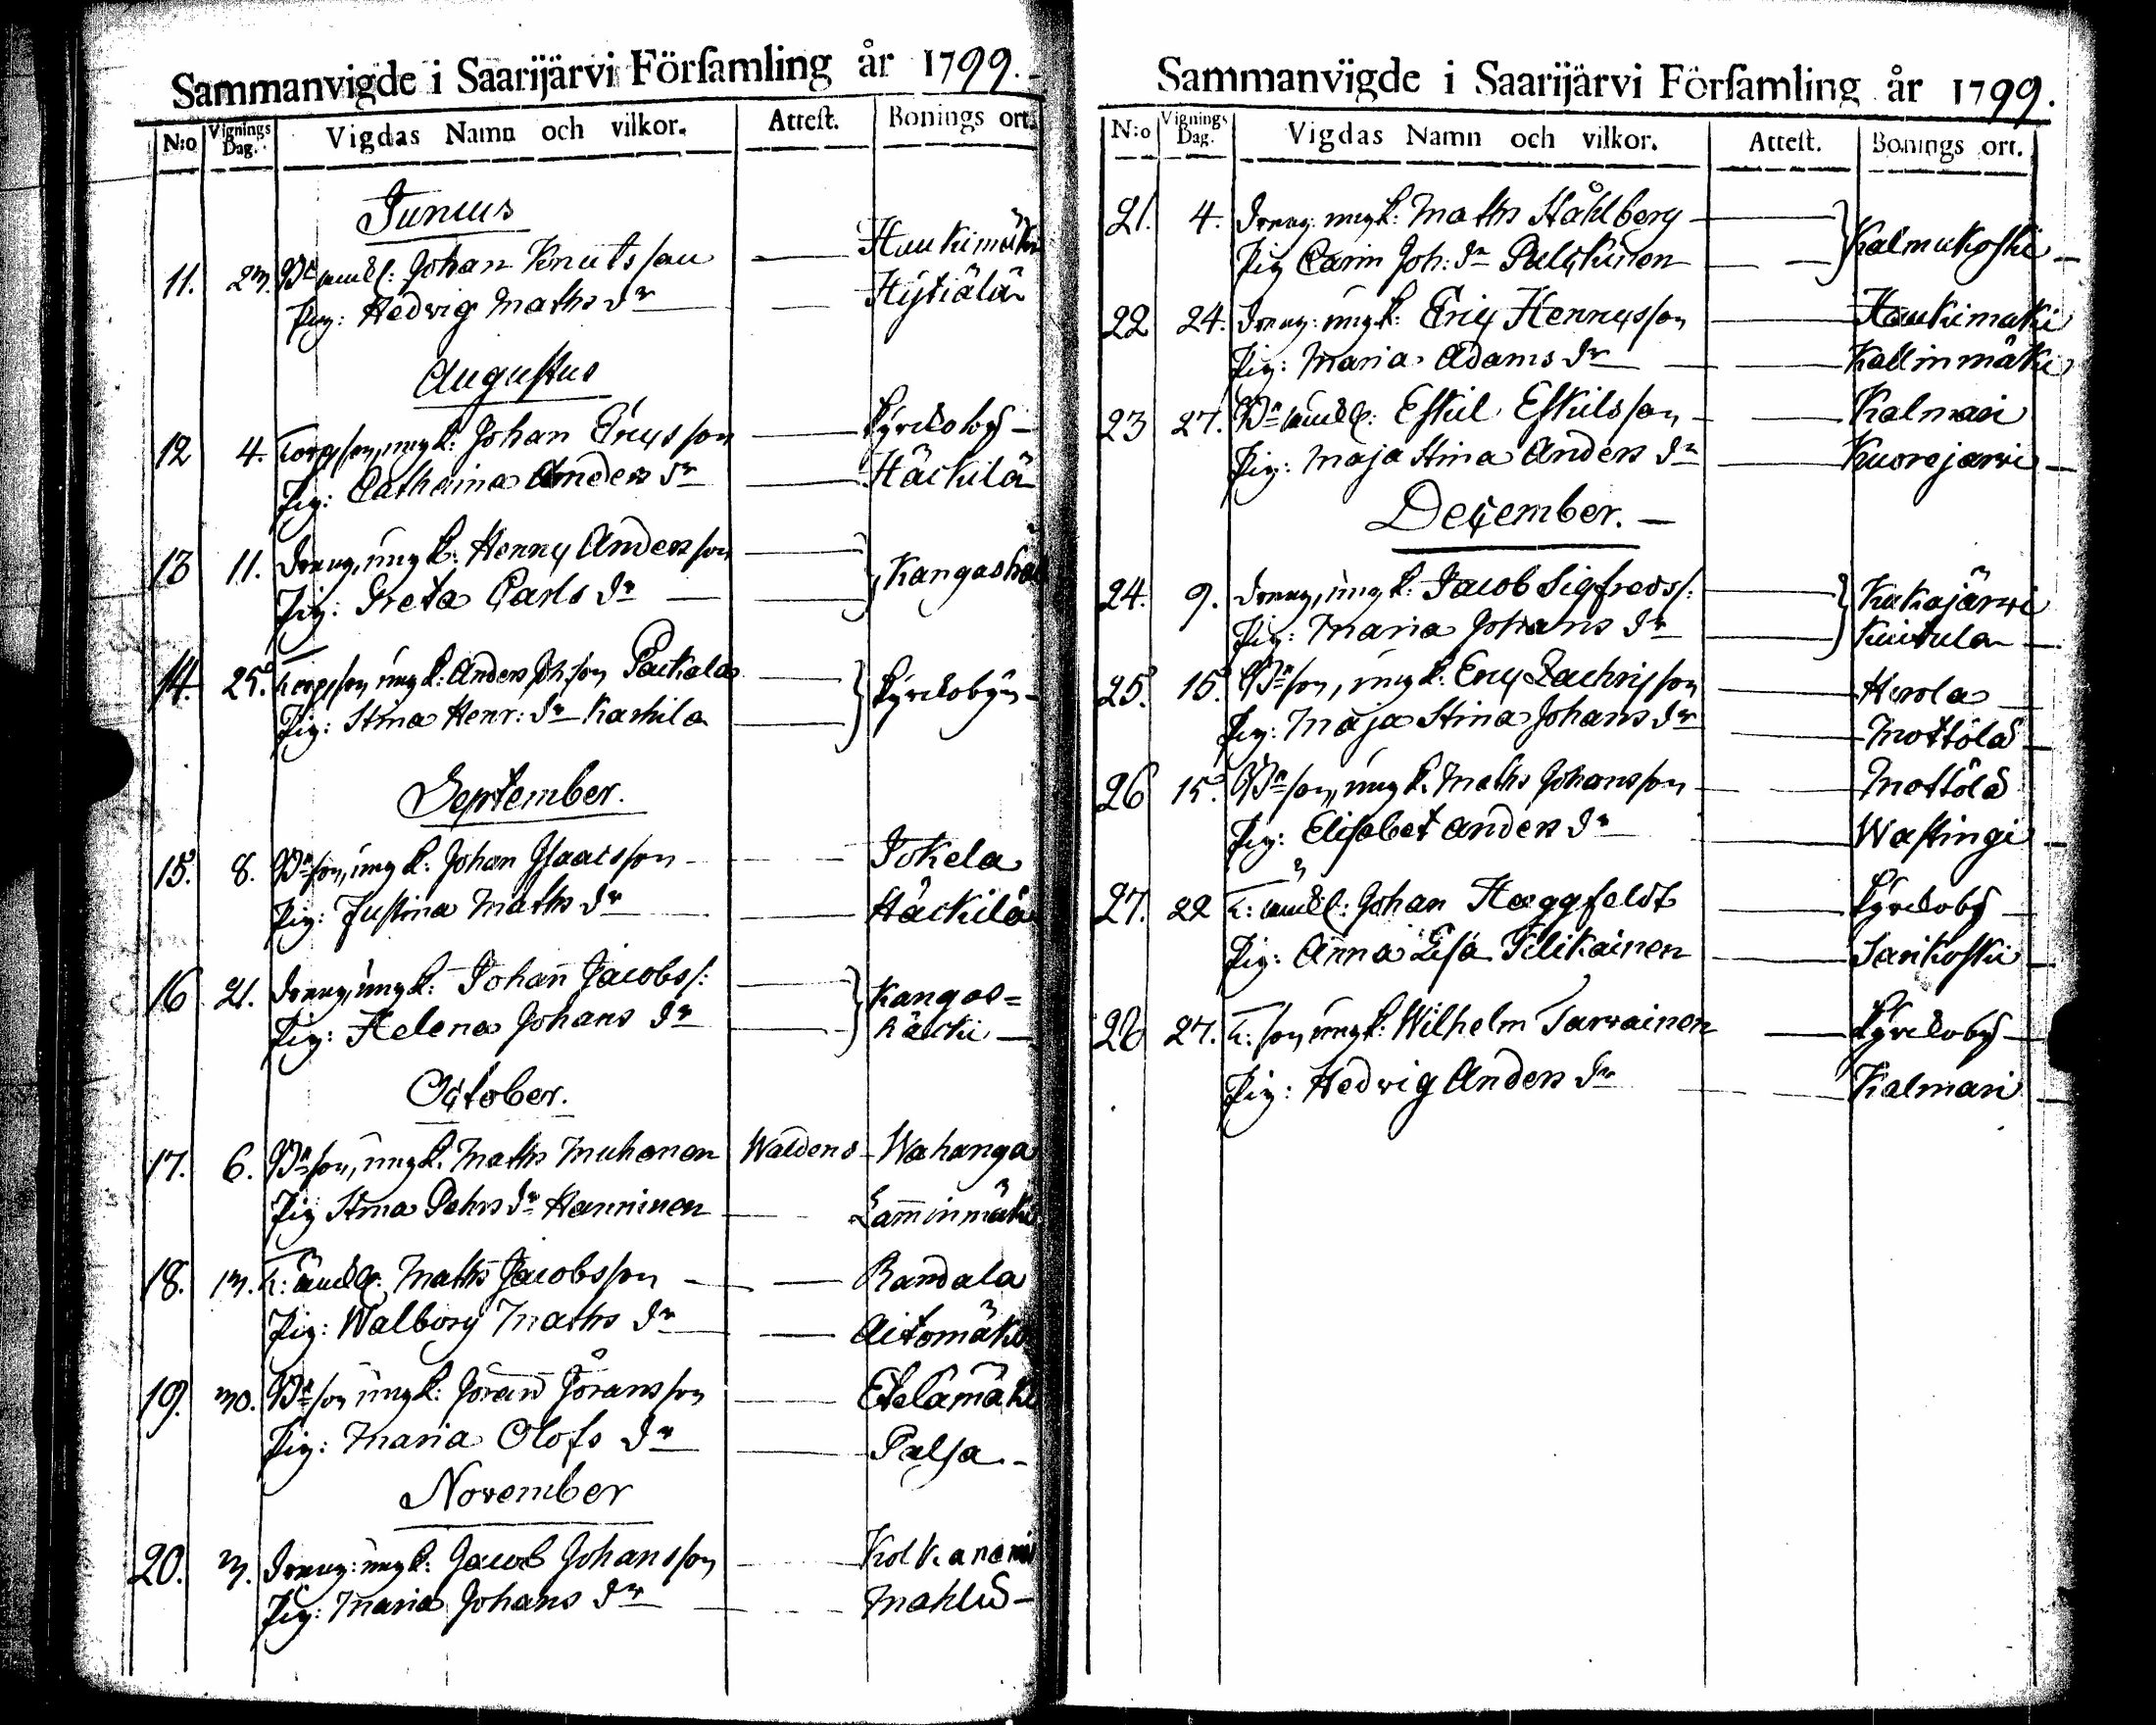 Sammanvigde i Saarijärvi Förſamling år 1799.
N:o Vignings Dag. Vigdas Namn och vilkor. Atteſt. Bonings ort.
Junius
11. 23. Johan Knutsson Haukimäki
Pig: Hedvig Maths dr Hytiälä
Augustus
12 4. Torp son, ungk: Johan Ericsson Kyrckoby
Pig: Catharina Anders dr Häckilä
13 11. Dreng, ungk: Henric Andersson Kangashä
Pig: Greta Carls dr
14. 25. Torp son ungk: Anders Joh:son Packala Kyrckobyn
Pig: Stina Henr: dr Kaskila
September.
15. 8. Bn son, ungk: Johan Isaacsson Jokela
Pig: Justina Maths dr Häckilä
16 21. Dreng, ungk: Johan Jacobss: Kangas=
Pig: Helena Johans dr häcki
October.
17. 6. Bn son, ungk. Maths Muhonen Waldens Wahanga
Pig Stina Pehrs dr Hanninen Lam̅inmäki
18. 13. Maths Jacobsson Randala
Pig: Walborg Maths dr Aitomäki
19. 30. Bn son ungk: Göran Göransson Etelämäki
Pig: Maria Olofs dr Palsa
November
20. 3. Dreng: ungk: Jacob Johansson Kolkanemi
Pig: Maria Johans dr Mahlu
Sammanvigde i Saarijärvi Förſamling år 1799.
N:o Vignings Dag. Vigdas Namn och vilkor. Atteſt. Bonings ort.
21. 4. Dreng: ungk: Maths Ståhlberg Kalmukoski
Pig Carin Joh: dr
22 24. Dreng: ungk: Eric Henricsson Haukimäki
Pig: Maria Adams dr Kallinmäki
23 27. Eskil Eskilsson Kalmari
Pig: Maja Stina Anders dr Kuorejarvi
December.
24. 9. Dreng, ungk: Jacob Sigfredss: Kukajärwi
Pig: Maria Johans dr Kuitula
25. 15. Bn son, ungk: Eric Zachrisson Herola
Pig: Maja Stina Johans dr Mottölä
26 15. Bn son, ungk. Maths Johansson Mottölä
Pig: Elisabet Anders dr Wastingi
27. 22 Johan Heggfeldt Kyrckoby
Pig: Anna Lisa Tilikainen Sarikoski
28 27. T: son ungk: Wilhelm Tarvainen Kyrckoby
Pig: Hedvig Anders dr Kalmari